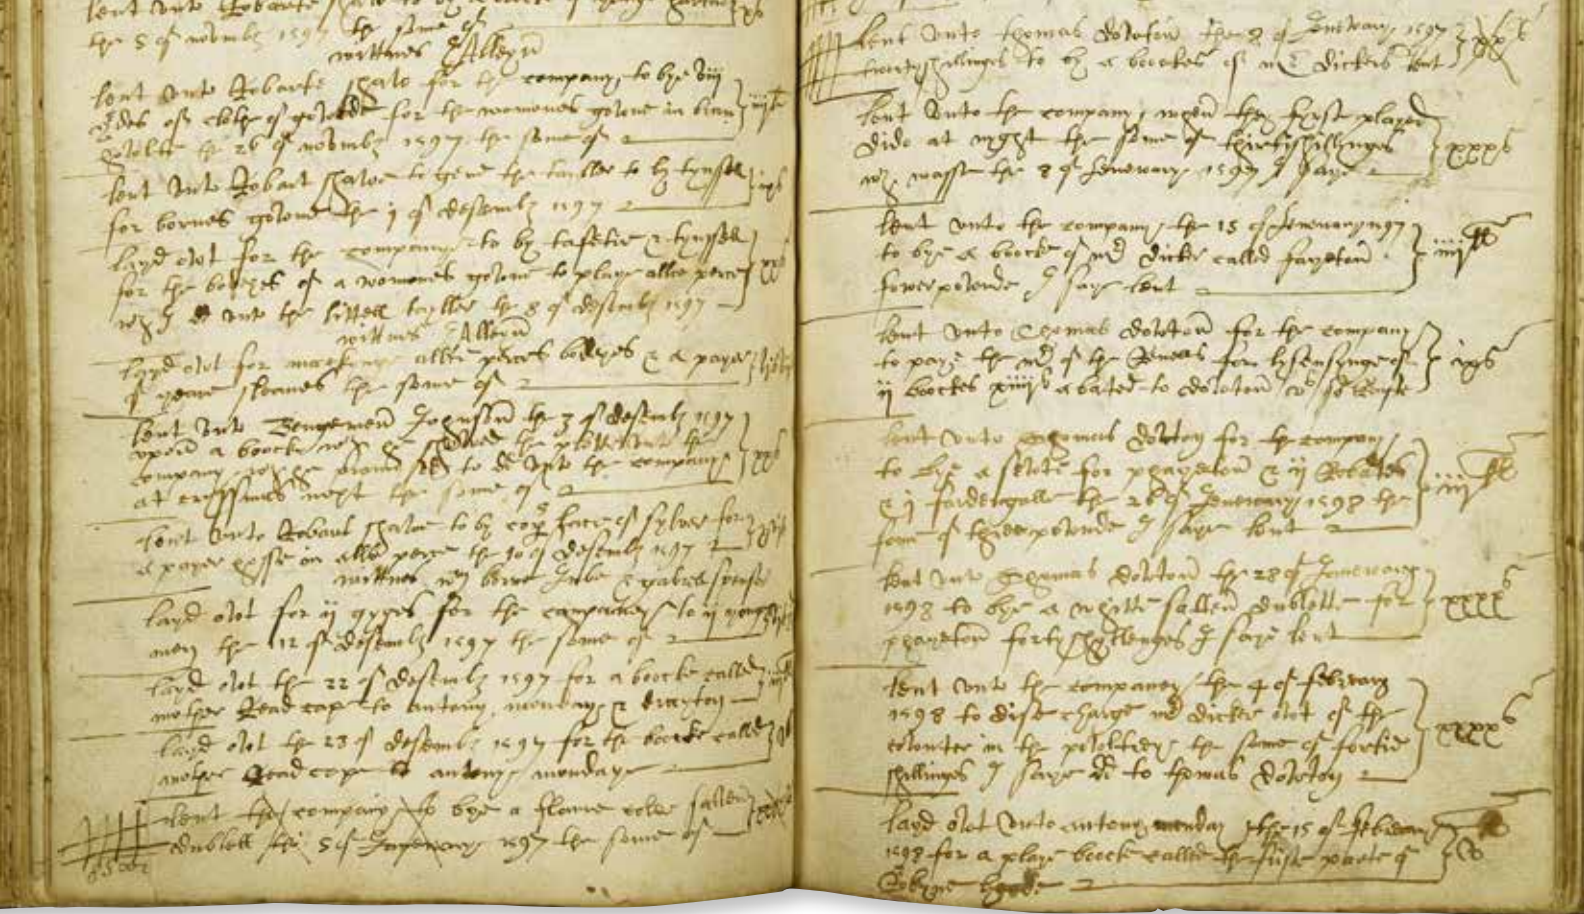 lent vnto Robarte
the 5 of novmbȝ 1597 the some of
wittnes E Alleyn
lent vnto Robarte shawe for the company to bye viij
of clothe of gowlde for the womones gowne in bran
howlte the 26 of novmbȝ 1597 the some of
lent vnto Robart shawe to geue the tayller to by tynssell
for bornes gowne the j of desembȝ 1597
layd owt for the company to by tafetie & tynssell
for the bodeyes of a womones gowne to playe allce perce
wch I dd vnto the littell tayller the 8 of desembȝ 1597
wittnes E Alleyn
layd owt for mackynge allce perces bodeyes & a payer
of yeare sleaues the some of
lent vnto Bengemen Johnson the 3 of desembȝ 1597
vpon a boocke wch he showed the plotte vnto the
company wch he promysed to dd vnto the company
at crissmas next the some of
lent vnto Robart shawe to by copr lace of sylver for
a payer hosse in alls perce the 10 of desembȝ 1597
wittnes wm borne Jube & gabrell spenser
layd owt for ij gyges for the companey to ij yonge
men the 12 of desembȝ 1597 the some of
layd owt the 22 of desembȝ 1597 for a boocke called
mother Read cape to antony monday & drayton
layd owt the 28 of desembȝ 1597 for the boocke called
mother Read cape to antony mondaye
lent the company to bye a flame coler satten
dublett the 5 of Jenewary 1597 the some of
lent vnto thomas dowton the 8 of Jenewary 1597 xxs
twenty shillinges to by a boocke of mr dickers lent
lent vnto the company when they fyrst played
dido at nyght the some of thirtyshillynges xxxs
wch wasse the 8 of Jenewary 1597 I saye
lent vnto the company the 15 of Jenewary 1597
to bye a boocke of mr dicker called fayeton iiijll
fower pownde I saye lent
lent vnto Thomas dowton for the company
to paye the mr of the Reuells for lysensynge of
ij boockes xiiijs abated to dowton vs so Reste ixs
lent vnto Thomas dowton for the company
to bye a sewte for phayeton & ij Rebates
& j fardengalle the 26 of Jenewary 1598 the
some of three pownde I saye lent
lent vnto Thomas dowton the 28 of Jenewary
1598 to bye a whitte satten dublette for xxxxs
phayeton forty shyllenges I saye lent
lent vnto the companey the 4 of febreary
1598 to disecharge mr dicker owt of the
cownter in the powltrey the some of fortie xxxxs
shillinges I saye dd to thomas dowton
layd owt vnto antony monday the 15 of febreary
1598 for a playe boocke called the firste parte of
Robyne hoode